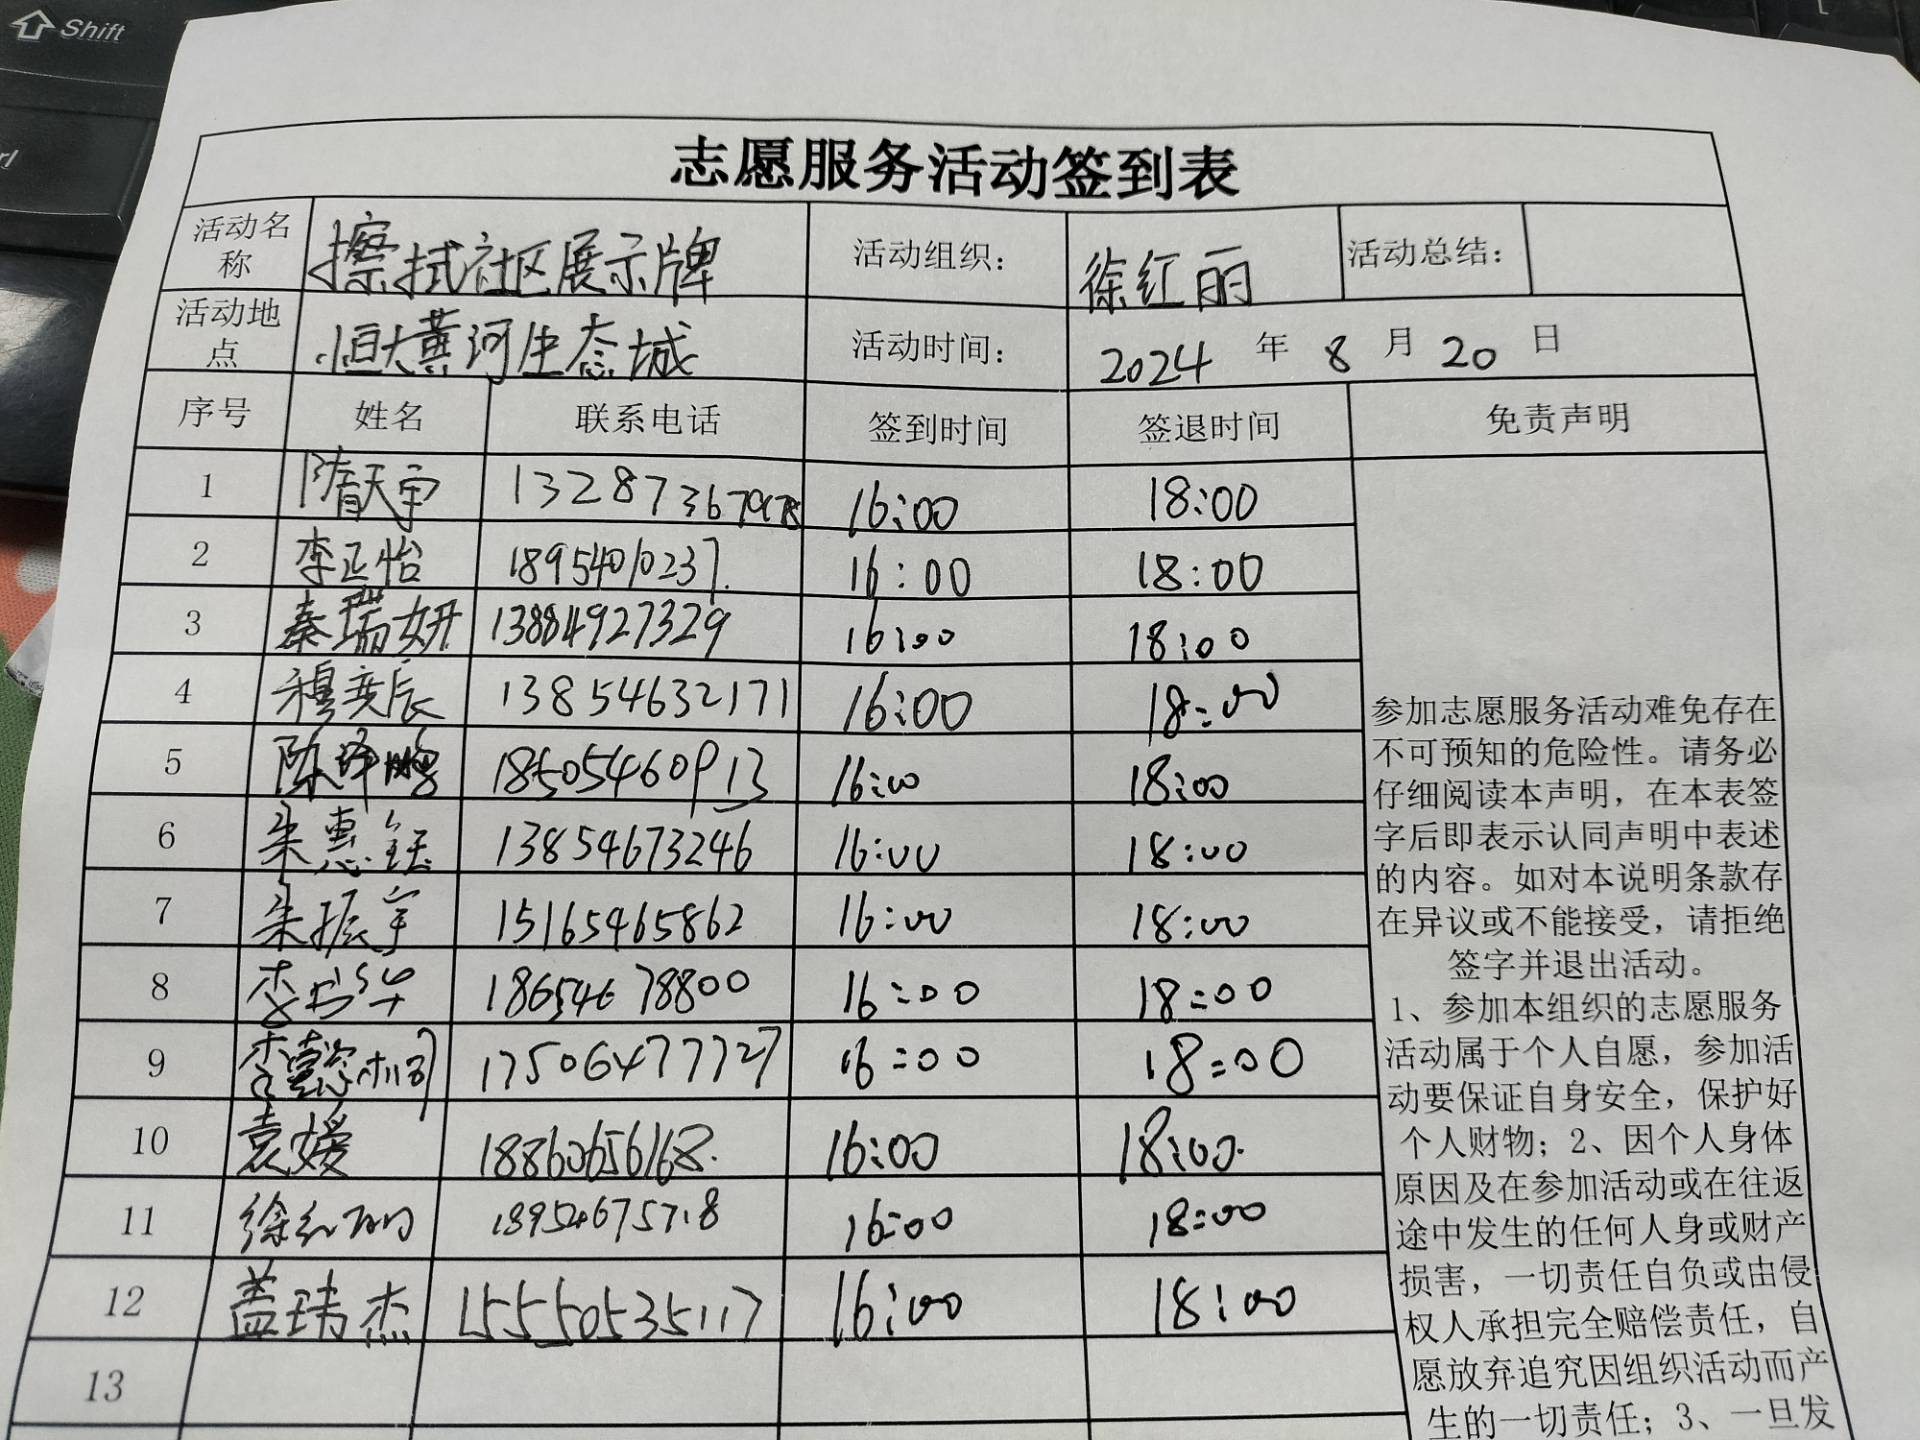 Shift
志愿服务活动签到表
活动名称 擦拭社区展示牌 活动组织: 徐红丽 活动总结:
活动地点 恒大黄河生态城 活动时间: 2024 年 8 月 20 日
序号 姓名 联系电话 签到时间 签退时间 免责声明
1 隋天宇 16:00 18:00
2 李正怡 18954010237 16:00 18:00
3 秦瑞妍 13884927329 16:00 18:00
4 穆奕辰 13854632171 16:00 18:00
5 18505460913 16:00 18:00
6 朱惠钰 13854673246 16:00 18:00
7 朱振宇 15165465862 16:00 18:00
8 18654678800 16:00 18:00
9 17506477727 16:00 18:00
10 袁媛 18860656168. 16:00 18:00.
11 徐红丽 18954675718 16:00 18:00
12 盖玮杰 15550535117 16:00 18:00
13
参加志愿服务活动难免存在
不可预知的危险性。请务必
仔细阅读本声明，在本表签
字后即表示认同声明中表述
的内容。如对本说明条款存
在异议或不能接受，请拒绝
签字并退出活动。
1、参加本组织的志愿服务
活动属于个人自愿，参加活
动要保证自身安全，保护好
个人财物；2、因个人身体
原因及在参加活动或在往返
途中发生的任何人身或财产
损害，一切责任自负或由侵
权人承担完全赔偿责任，自
愿放弃追究因组织活动而产
生的一切责任；3、一旦发